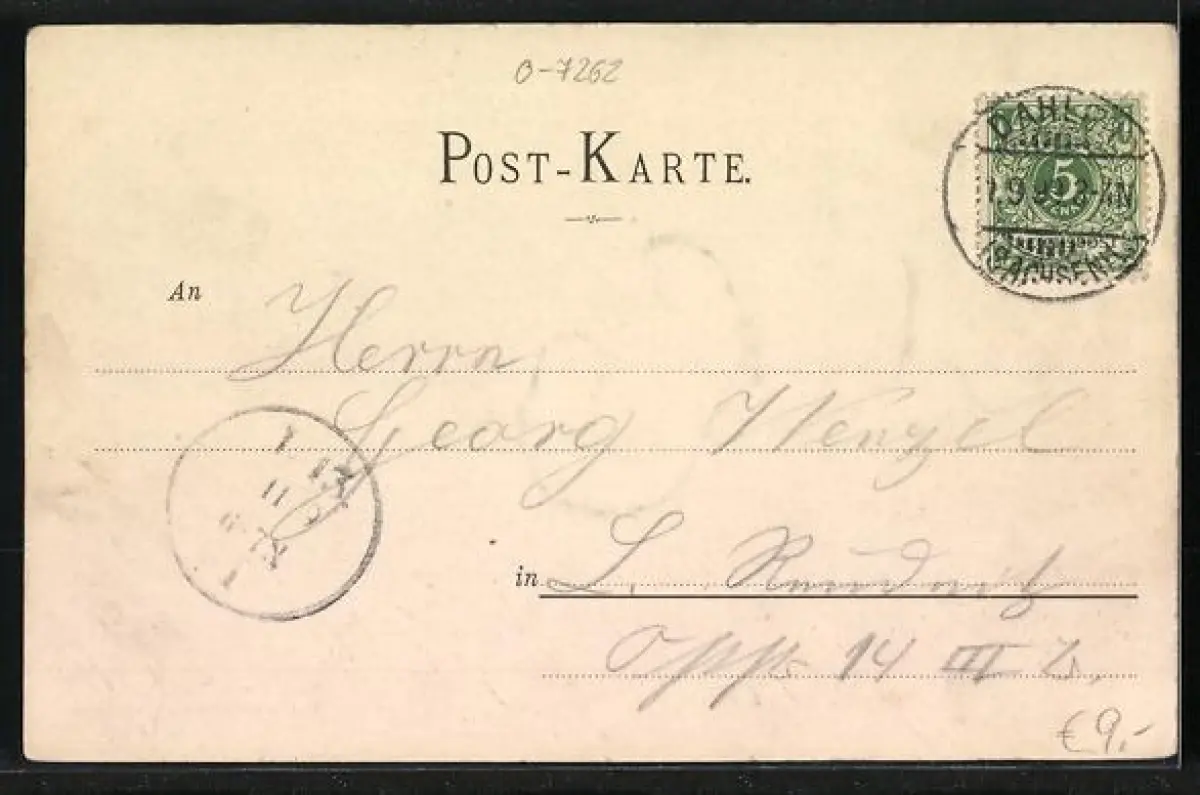 O-7262
POST-KARTE.
DAHLEN
5
(SACHSEN)
An Herrn
Georg Wenzel
in L. Reudnitz
14 III
€ 9,-